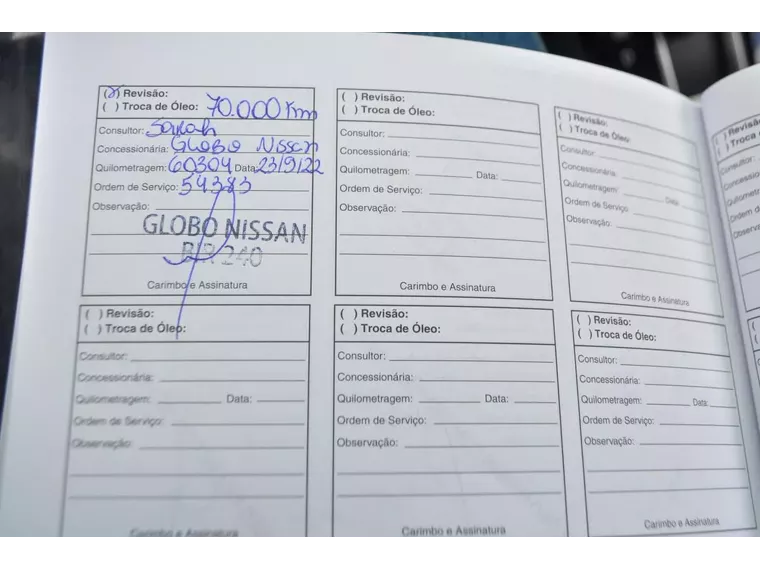 (x) Revisão:
( ) Troca de Óleo: 70.000 Km
Consultor: Sarah
Concessionária: Globo Nissan
Quilometragem: 60304 Data: 23/9/22
Ordem de Serviço: 54383
Observação:
GLOBO NISSAN
240
Carimbo e Assinatura
( ) Revisão:
( ) Troca de Óleo:
Consultor:
Concessionária:
Quilometragem: Data:
Ordem de Serviço:
Observação:
Carimbo e Assinatura
( ) Revisão:
( ) Troca de Óleo:
Consultor:
Concessionária:
Quilometragem: Data:
Ordem de Serviço
Observação:
Carimbo e Assinatura
( ) Revisão:
( ) Troca de
Consultor:
( ) Revisão:
( ) Troca de Óleo:
Consultor:
Concessionária:
Quilometragem: Data:
Ordem de Serviço:
Observação:
Carimbo e Assinatura
( ) Revisão:
( ) Troca de Óleo:
Consultor:
Concessionária:
Quilometragem: Data:
Ordem de Serviço:
Observação:
Carimbo e Assinatura
( ) Revisão:
( ) Troca de Óleo:
Consultor:
Concessionária:
Quilometragem: Data:
Ordem de Serviço:
Observação:
Carimbo e Assinatura